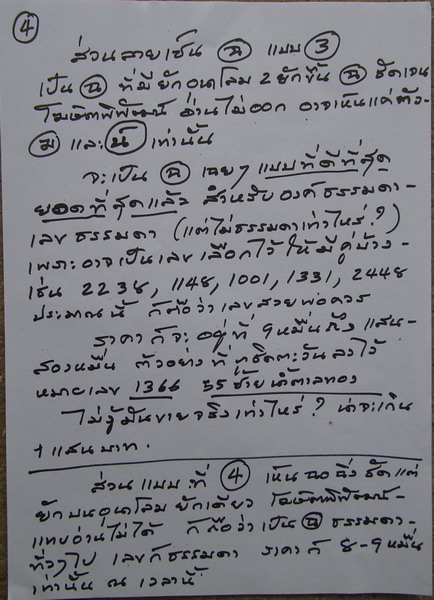 4
ส่วนลายเซ็น ฉ แบบ 3
เป็น ฉ ที่มียักอนุโลม 2 ยักขึ้น ฉ ชัดเจน
โฆษิตพิพัฒน์ อ่านไม่ออก อาจเห็นแค่ตัว-
ฆ และ น์ เท่านั้น
จะเป็น ฉ เฉยๆ แบบที่ดีที่สุด
ยอดที่สุดแล้ว สำหรับองค์ธรรมดา-
เลขธรรมดา (แต่ไม่ธรรมดาเท่าไหร่?)
เพราะอาจเป็นเลขเลือกไว้ให้มีคู่บ้าง-
เช่น 2238, 1148, 1001, 1331, 2448
ประมาณนี้ ก็ถือว่าเลขสวยพอควร
ราคาก็จะอยู่ที่ 9หมื่นถึงแสน-
สองหมื่น ตัวอย่างที่
หมายเลข 1366
ไม่รู้มันขายจริงเท่าไหร่? น่าจะเกิน
1 แสนบาท.
ส่วนแบบที่ 4 เห็น ชัดแต่
ยักบนอนุโลมยักเดียว โฆษิตพิพัฒน์-
แทบอ่านไม่ได้ ก็ถือว่าเป็น ฉ ธรรมดา-
ทั่วๆไป เลขก็ธรรมดา ราคาก็ 8-9หมื่น
เท่านั้น ณ เวลานี้